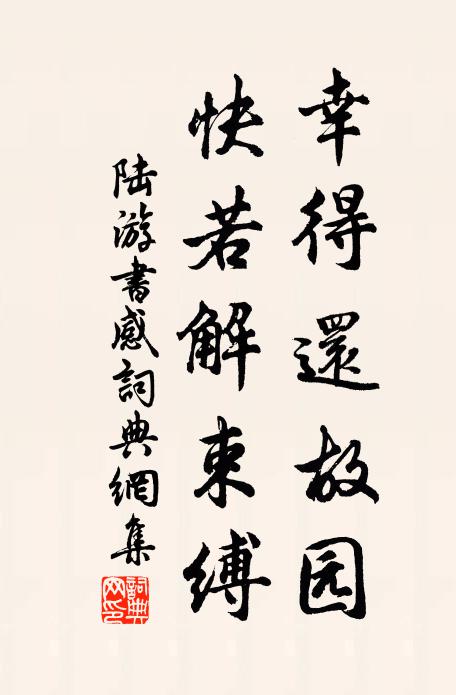 幸得還故园
快若解束缚
陆游書感詞典網集
詞典网印